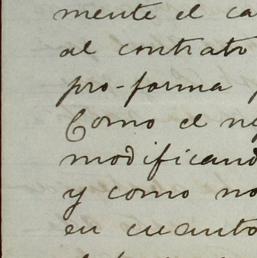 mente el ca
al contrato
pro-forma
Como el ne
modificand
y como no
en cuanto